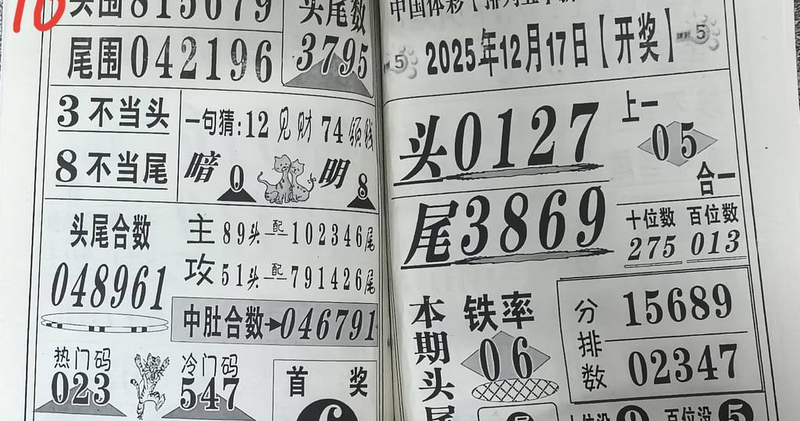 头围815679
头尾数
3795
尾围042196
3不当头
8不当尾
一句猜:12见财 74领钱
暗 0
明 8
头尾合数
048961
主 89头配102346尾
攻 51头配791426尾
中肚合数 046791
热门码
023
冷门码
547
首奖
2025年12月17日【开奖】
5
5
头0127
上一
05
合一
尾3869
十位数 百位数
275 013
本期头尾
铁率
06
分排数
15689
02347
百位没5